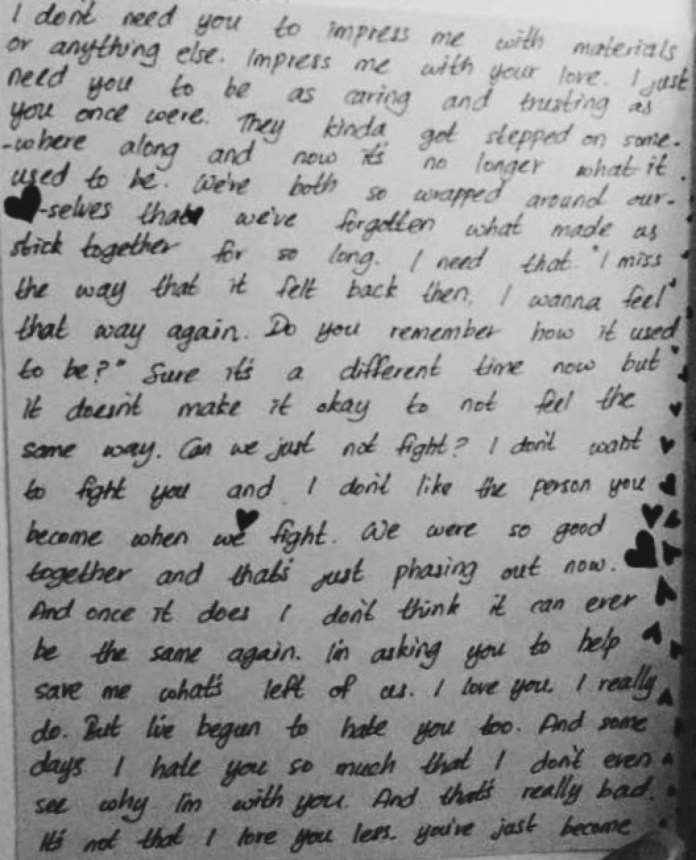 I don't need you to impress me with materials
or anything else. Impress me with your love. I just
need you to be as caring and trusting as
you once were. They kinda got stepped on some-
-where along and now it's no longer what it
used to be. We're both so wrapped around our-
-selves that we've forgotten what made us
stick together for so long. I need that. "I miss
the way that it felt back then, I wanna feel
that way again. Do you remember how it used
to be?" Sure it's a different time now but
it doesn't make it okay to not feel the
same way. Can we just not fight? I don't want
to fight you and I don't like the person you
become when we fight. We were so good
together and that's just phasing out now.
And once it does I don't think it can ever
be the same again. I'm asking you to help
save me what's left of us. I love you, I really
do. But I've begun to hate you too. And some
days I hate you so much that I don't even
see why I'm with you. And that's really bad.
It's not that I love you less. you've just become